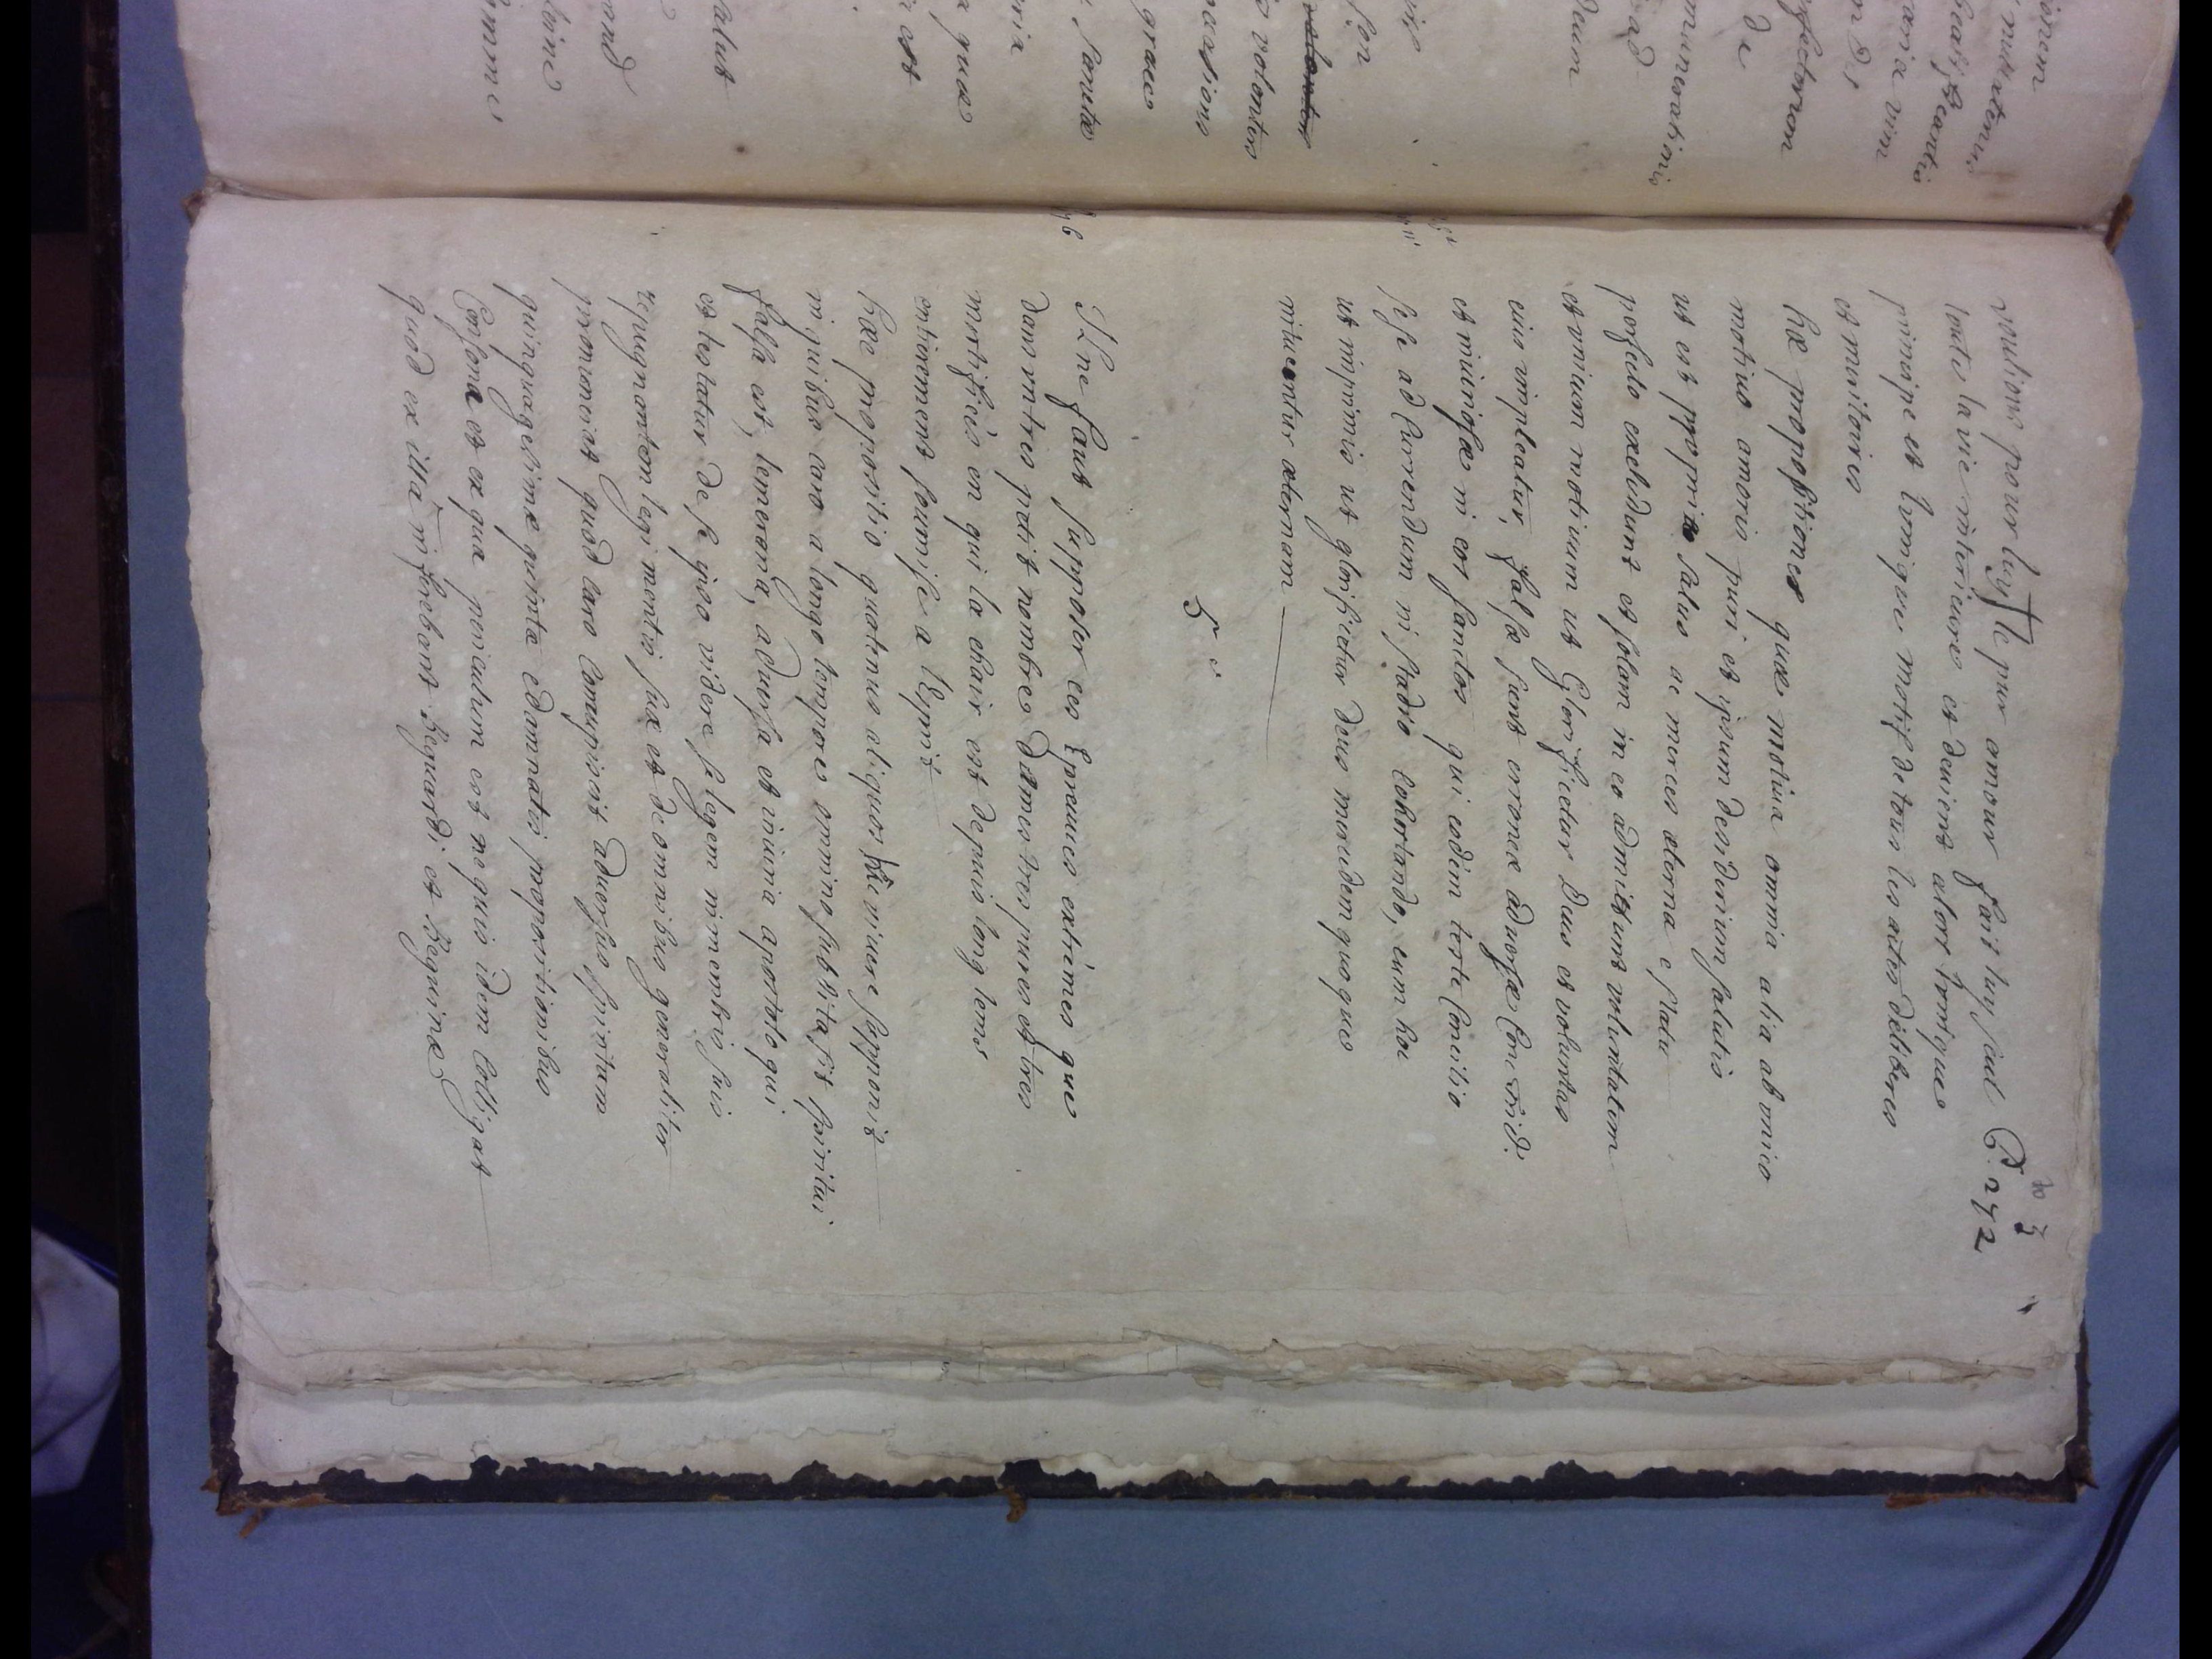 P. 272
voulions pour luy. Le pur amour fait luy seul
toute la vie interieure et devient alors l'unique
principe et l'unique motif de tous les actes deliberes
et meritoires
hæ propositiones quæ motiva omnia alia ab unico
motivo amoris puri et ipsum desiderium salutis
ut est propria salus ac merces æterna e statu
perfecto excludunt et solam in eo admittunt voluntatem
et unicum motivum ut Glorificetur Deus et voluntas
eius impleatur, falsæ sunt erroneæ adversæ Concilio Trid.
et iniuriosæ in eos sanctos qui eodem teste Concilio
sese ad currendum in stadio cohortando, cum hoc
ut imprimis ut glorificetur Deus mercedem quoque
intuentur æternam
5
Il ne faut supposer ces Epreuves extrêmes que
dans un tres petit nombre d'ames tres pures et tres
mortifiées en qui la chair est depuis long tems
entierement soumise a l'Esprit
hæc propositio quatenus aliquos hic vivere supponit
in quibus caro a longo tempore omnino subdita sit spiritui
falsa est, temeraria, adversa et iniuria apostolo qui
et testatur de se ipso videre se legem in membris suis
repugnantem legi mentis suæ et de omnibus generaliter
pronunciat quod caro concupiscit adversus spiritum
quinquagesimæ quintæ e damnatis propositionibus
consona et ex qua periculum est ne quis idem colligat
quod ex illa inferebant Beguardi et Beguinæ